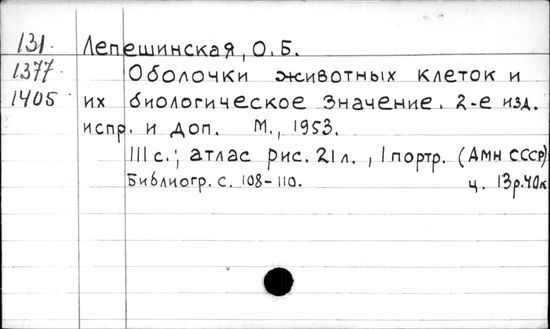 131. Лепешинская, О.Б.
1377. Оболочки животных клеток и
1405 их биологическое значение. 2-е изд.
испр. и доп. М., 1953.
111 с.; атлас рис. 21 л., 1 портр. (АМН СССР)
Библиогр. с. 108-110. ц. 13р.40к